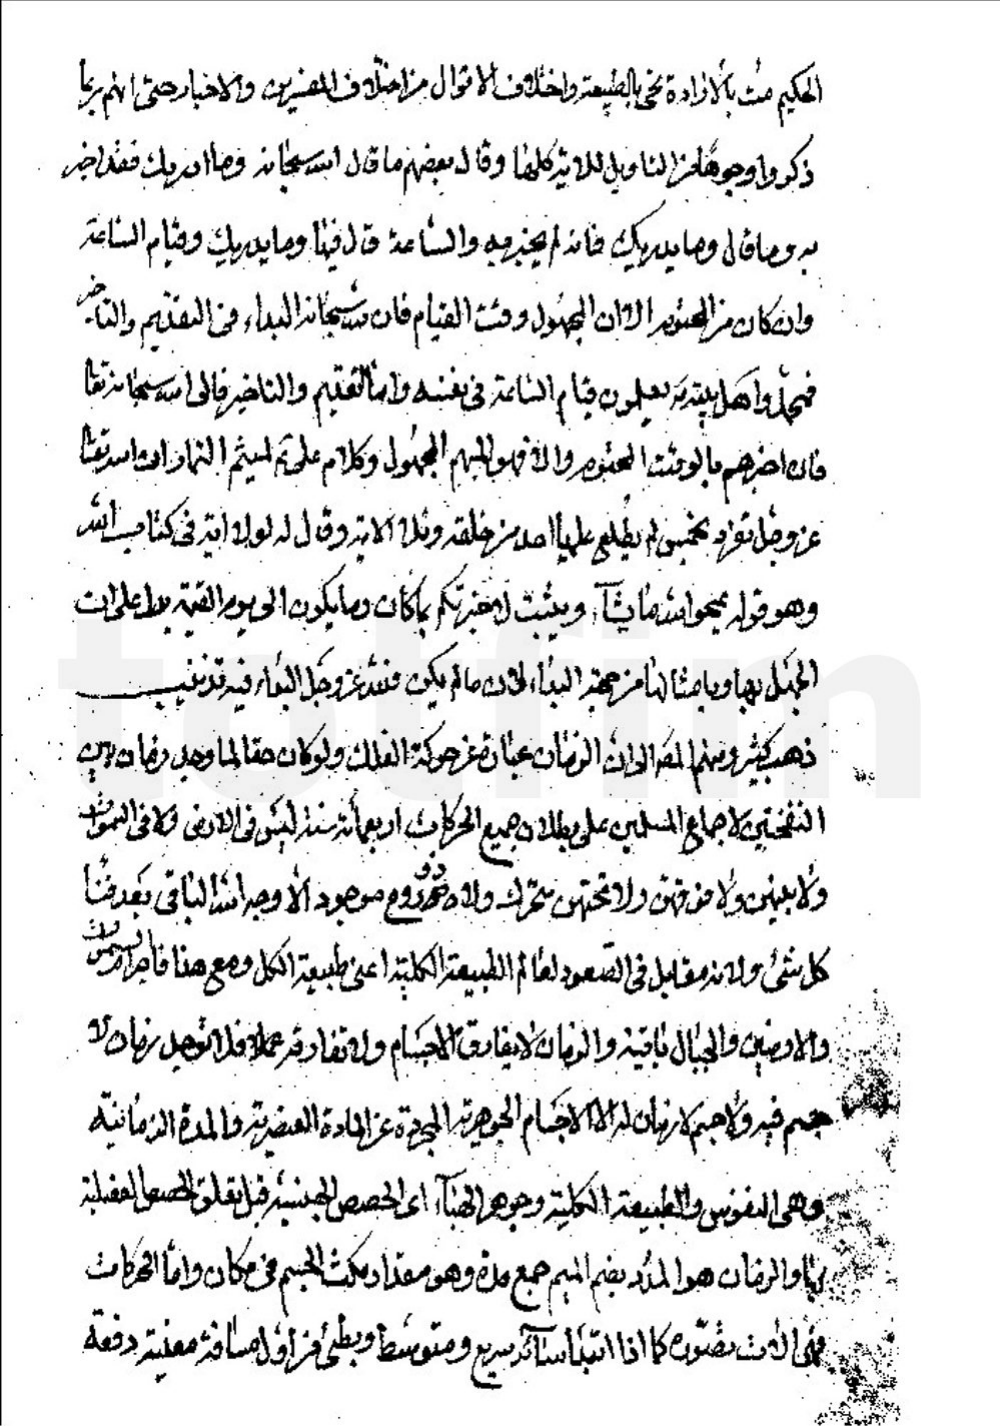 الحكيم مت بالارادة تحى بالطبيعة واختلاف الاقوال من اختلاف المفسرين والاخبار حتى انهم ربما
ذكروا وجوها من التاويل للاية كلها وقال بعضهم ما قال الله سبحانه وما ادريك فقد اخبر
به وما قال وما يدريك فانه لم يخبر به والساعة قال فيها وما يدريك وقيام الساعة
وان كان من المحتوم الا ان المجهول وقت القيام فان لله سبحانه البداء فى التقديم والتاخير
فمحمد واهل بيته يعلمون قيام الساعة فى نفسه واما التقديم والتاخير فالى الله سبحانه تعالى
فان اخبرهم بالوقت المحتوم والا فهو المبهم المجهول وكلام على لميثم التمار ان الله تعالى
عز وجل تفرد بخمس لم يطلع عليها احد من خلقه وتلا الاية وقال له لولا اية فى كتاب الله
وهو قوله يمحو الله ما يشآء ويثبت لاخبرتكم بما كان وما يكون الى يوم القيمة يدل على ان
الجهل بها وبامثالها من جهة البداء لان ما لم يكن فلله عز وجل البداء فيه تذنيب
ذهب كثير ومنهم الى ان الزمان عبارة عن حركة الفلك ولو كان حقا لما وجد زمان بين
النفختين لاجماع المسلمين على بطلان جميع الحركات اربعمائة سنة ليس فى الارض ولا فى السموات
ولا بينهن ولا فوقهن ولا تحتهن متحرك ولا ذو روح موجود الا وجه الله الباقى بعد فناء
كل شئ ولانه مقابل فى الصعود لعالم الطبيعة الكلية اعنى طبيعة الكل ومع هذا فاجرام السموات
والارضين والجبال باقية والزمان لا يفارق الاجسام ولا تفارقه فلا توجد زمان لا
جسم فيه ولا جسم لا زمان له الا الاجسام الجوهرية المجردة عن المادة العنصرية والمدة الزمانية
وهى النفوس والطبيعة الكلية وجوهر الهبآء اى الحصص الجنسية قبل تعلق الحصص الفصلية
بها والزمان هو المدد بضم الميم جمع مدة وهو مقدار مكث الجسم فى مكان واما الحركات
فهى الات كما اذا ابتدأ سآئر سريع ومتوسط وبطئ من اول مسافة معينة دفعة